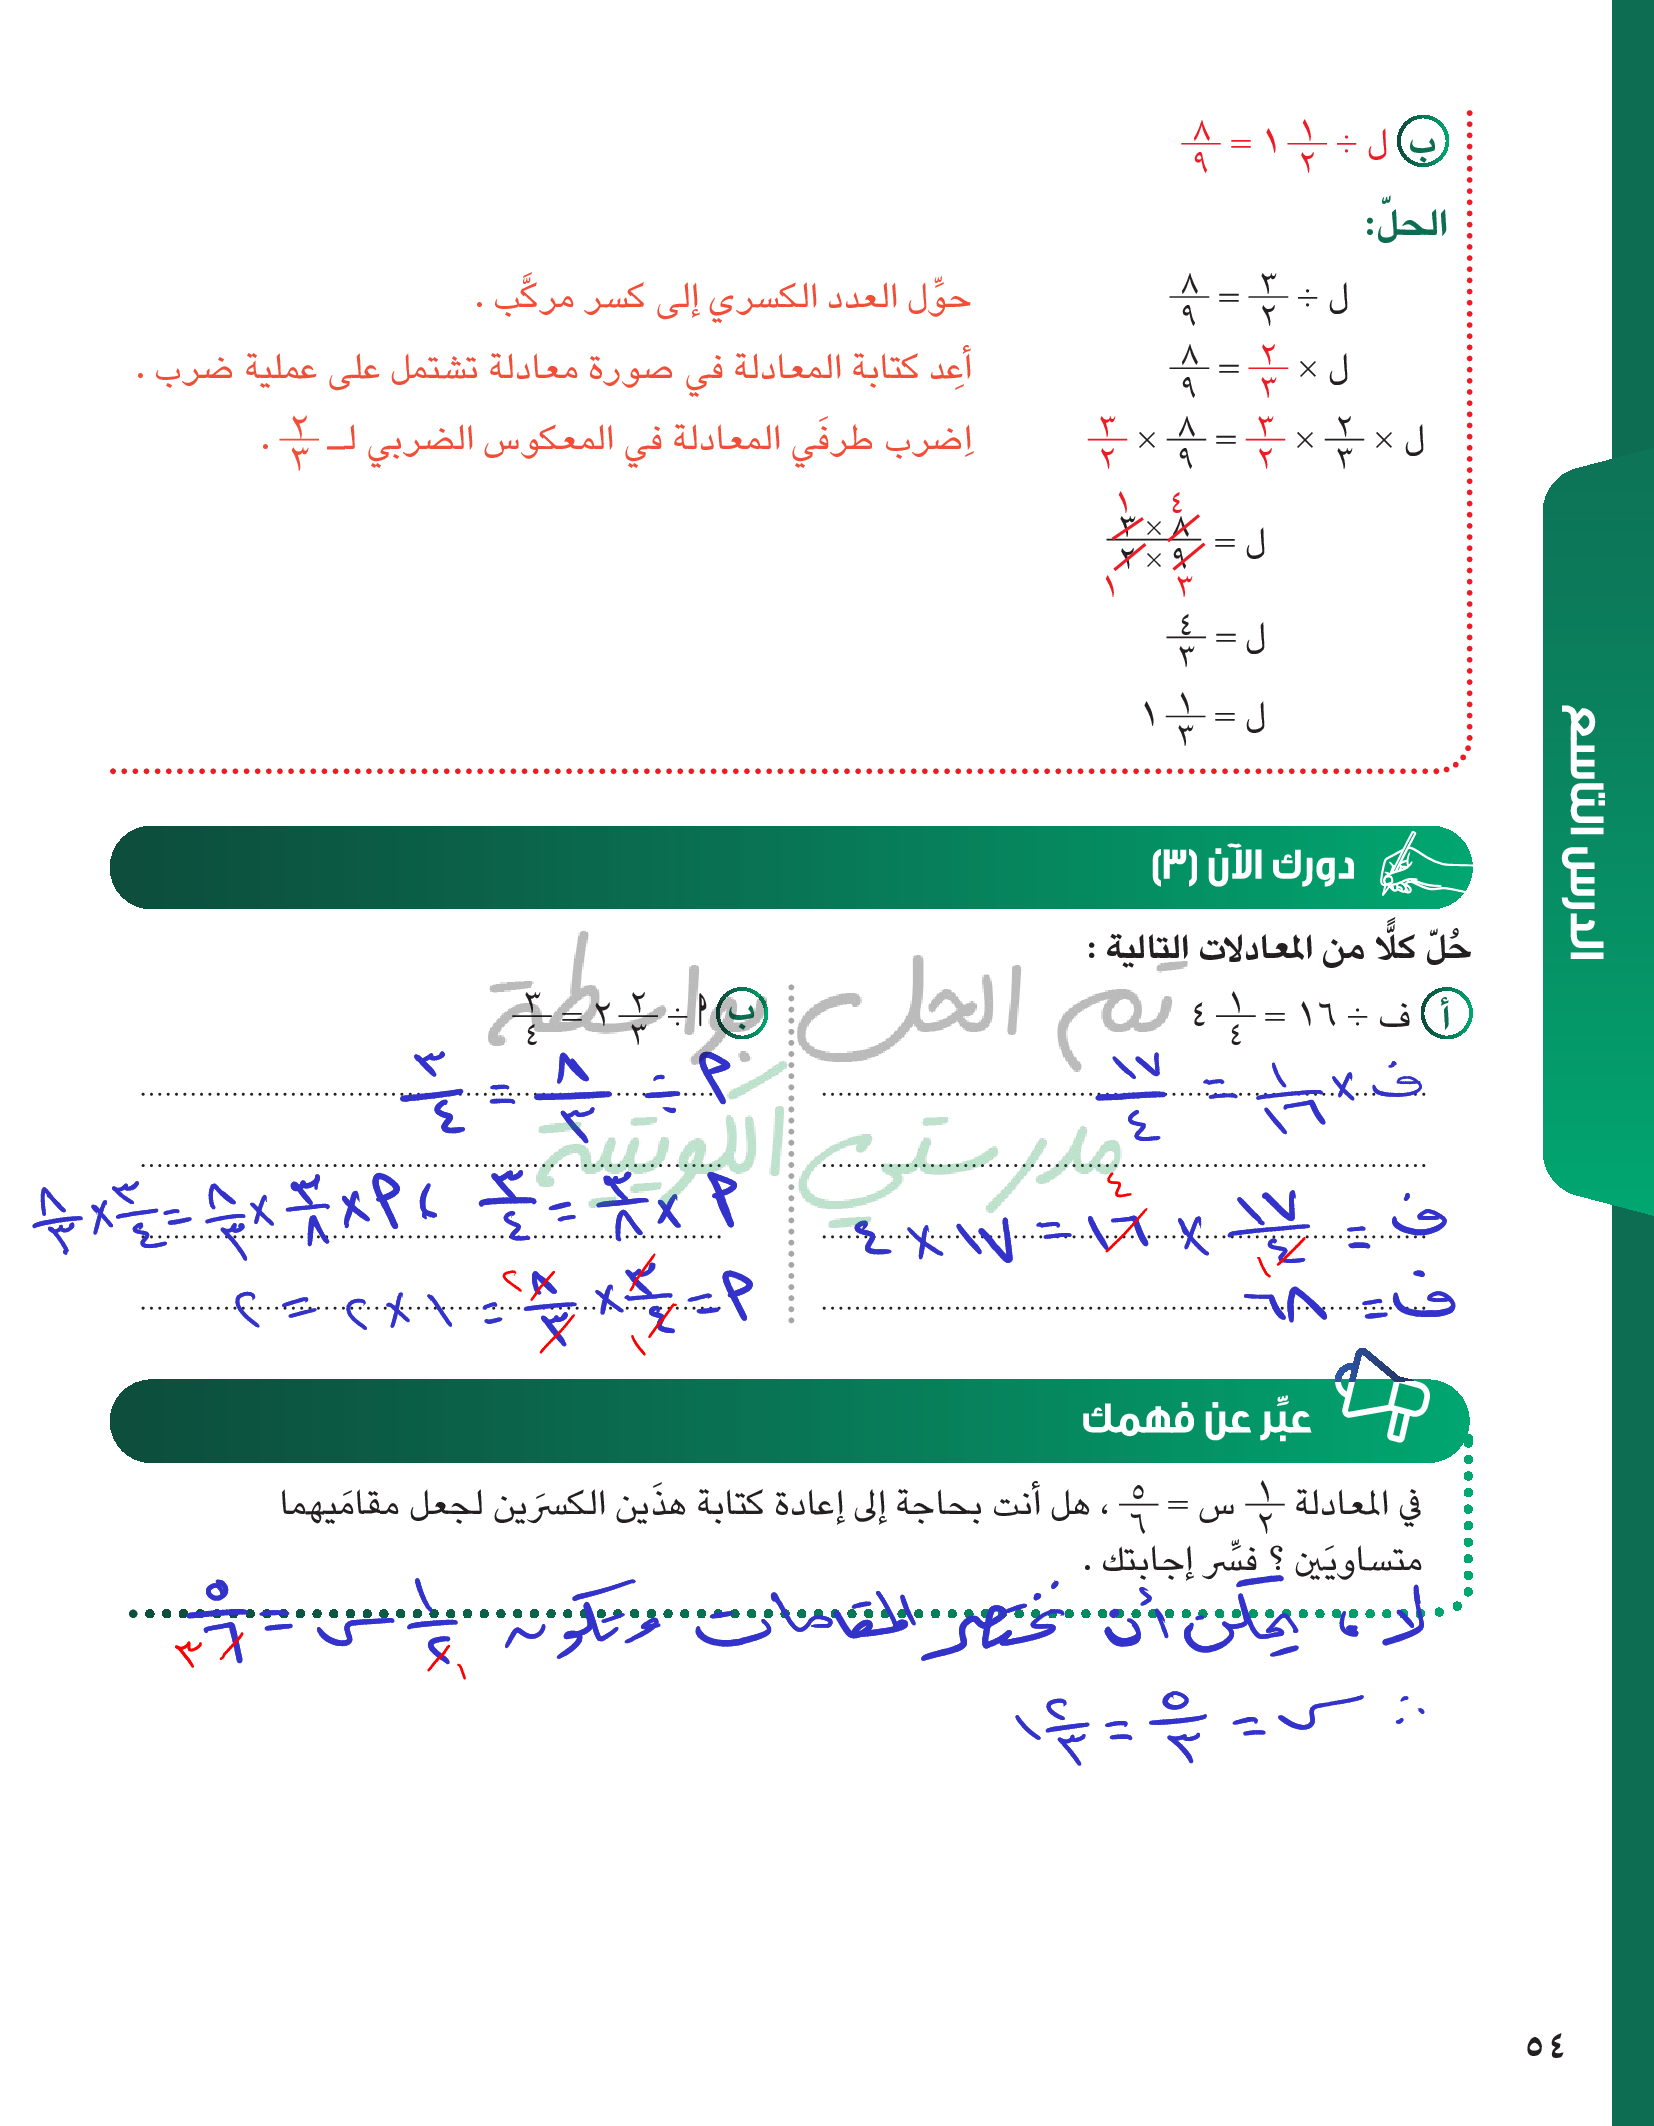 ب ل ÷ ١/٢ ١ = ٨/٩
الحلّ:
ل ÷ ٣/٢ = ٨/٩ حوِّل العدد الكسري إلى كسر مركَّب .
ل × ٢/٣ = ٨/٩ أعِد كتابة المعادلة في صورة معادلة تشتمل على عملية ضرب .
ل × ٢/٣ × ٣/٢ = ٨/٩ × ٣/٢ اِضرب طرفَي المعادلة في المعكوس الضربي لـ ٢/٣ .
٤ ١
ل = ٨ × ٣ / ٩ × ٢
٣ ١
ل = ٤/٣
ل = ١/٣ ١
الدرس التاسع
دورك الآن (٣)
حُلّ كلًّا من المعادلات التالية :
تم الحل بواسطة
مدرستي الكويتية
أ ف ÷ ١٦ = ١/٤ ٤
ف × ١/١٦ = ١٧/٤
ف = ١٧/٤ × ١٦ = ١٧ × ٤
١ ٤
ف = ٦٨
ب م ÷ ٢/٣ ٢ = ٣/٤
م ÷ ٨/٣ = ٣/٤
م × ٣/٨ = ٣/٤ ، م × ٣/٨ × ٨/٣ = ٣/٤ × ٨/٣
م = ٣/٤ × ٨/٣ = ١ × ٢ = ٢
١ ٢
عبِّر عن فهمك
في المعادلة ١/٢ س = ٥/٦ ، هل أنت بحاجة إلى إعادة كتابة هذَين الكسرَين لجعل مقامَيهما
متساويَين ؟ فسِّر إجابتك .
لا ، يمكن أن نختصر المقامات وتكون ١/٢ س = ٥/٦
١ ٣
∴ س = ٥/٣ = ٢/٣ ١
٥٤